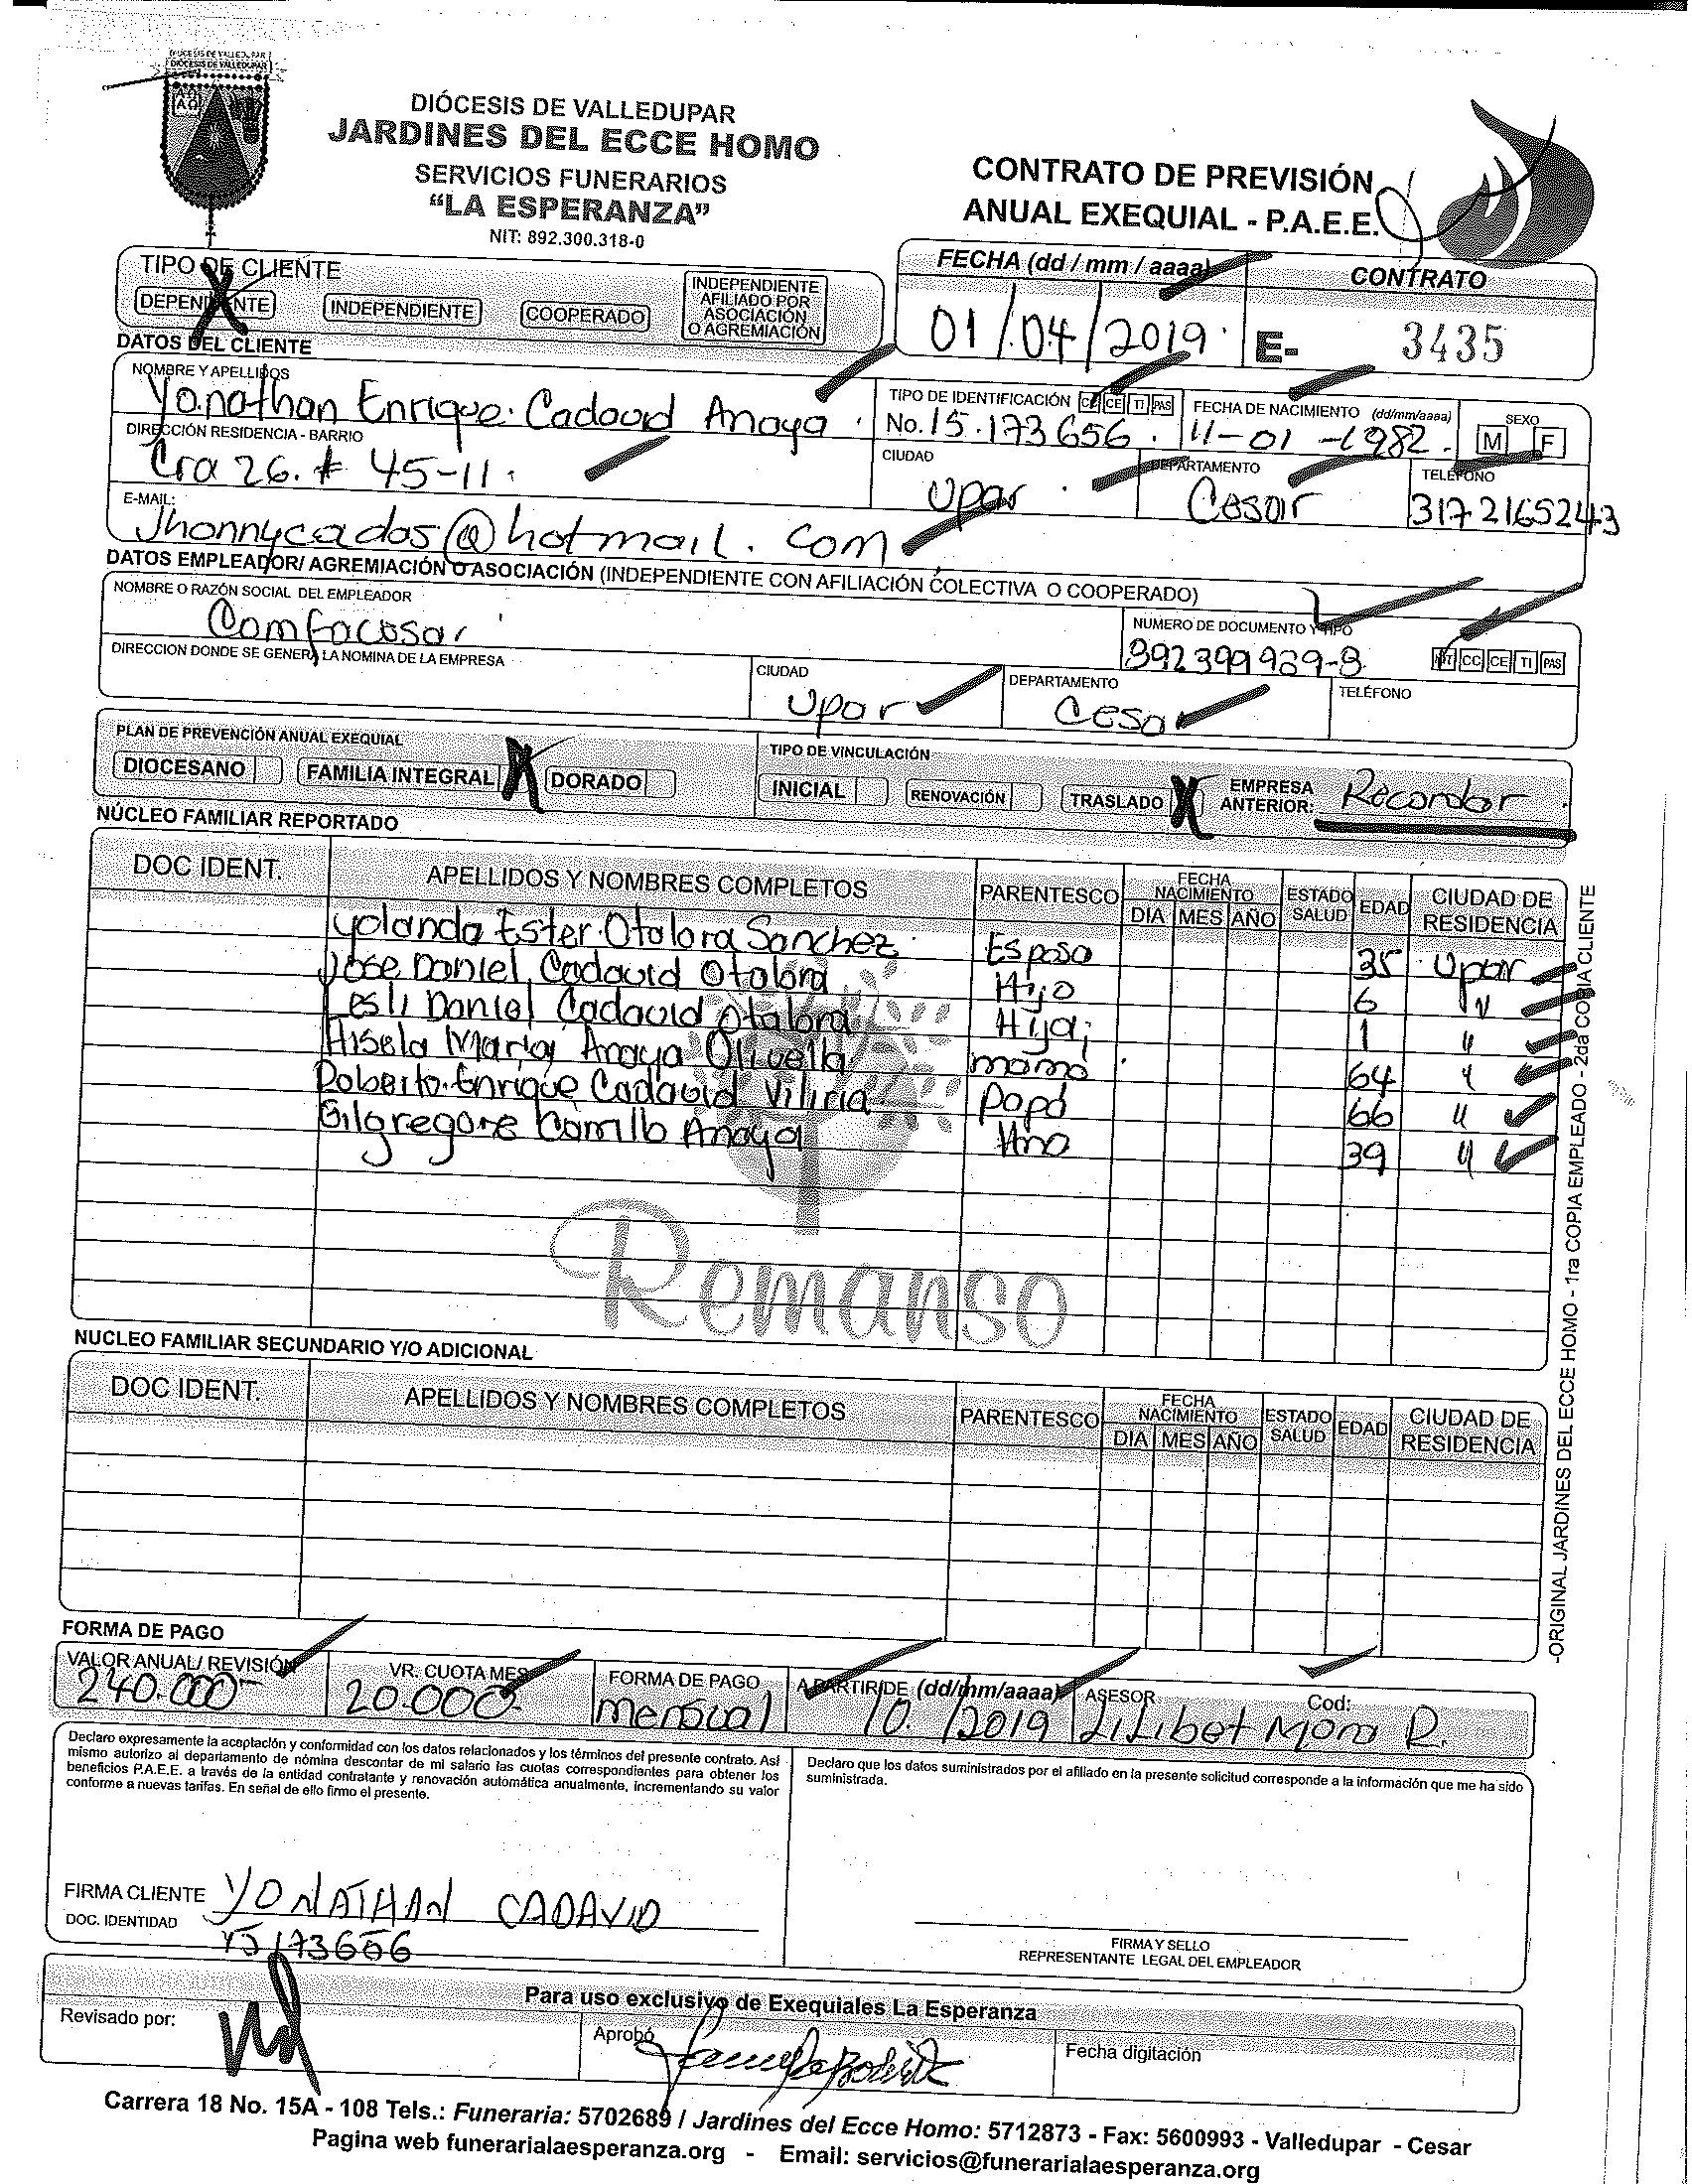 DIÓCESIS DE VALLEDUPAR
DIÓCESIS DE VALLEDUPAR
JARDINES DEL ECCE HOMO
SERVICIOS FUNERARIOS
“LA ESPERANZA”
NIT: 892.300.318-0
CONTRATO DE PREVISIÓN
ANUAL EXEQUIAL - P.A.E.E.
TIPO DE CLIENTE
DEPENDIENTE INDEPENDIENTE COOPERADO INDEPENDIENTE AFILIADO POR ASOCIACIÓN O AGREMIACIÓN
FECHA (dd / mm / aaaa) CONTRATO
01/04/2019 E- 3435
DATOS DEL CLIENTE
NOMBRE Y APELLIDOS TIPO DE IDENTIFICACIÓN CC CE TI PAS FECHA DE NACIMIENTO (dd/mm/aaaa) SEXO
Yonathan Enrique Cadavid Anaya No. 15.173656 11-01-1982 M F
DIRECCIÓN RESIDENCIA - BARRIO CIUDAD DEPARTAMENTO TELÉFONO
Cra 26. # 45-11 Upar Cesar 3172165243
E-MAIL:
Jhonnycadas@hotmail.com
DATOS EMPLEADOR/ AGREMIACIÓN O ASOCIACIÓN (INDEPENDIENTE CON AFILIACIÓN COLECTIVA O COOPERADO)
NOMBRE O RAZÓN SOCIAL DEL EMPLEADOR NUMERO DE DOCUMENTO Y TIPO
Comfacesar 892399989-8 NIT CC CE TI PAS
DIRECCION DONDE SE GENERA LA NOMINA DE LA EMPRESA CIUDAD DEPARTAMENTO TELÉFONO
Upar Cesar
PLAN DE PREVENCIÓN ANUAL EXEQUIAL TIPO DE VINCULACIÓN
DIOCESANO FAMILIA INTEGRAL X DORADO INICIAL RENOVACIÓN TRASLADO X EMPRESA ANTERIOR: Recordar
NÚCLEO FAMILIAR REPORTADO
DOC IDENT. APELLIDOS Y NOMBRES COMPLETOS PARENTESCO FECHA NACIMIENTO DIA MES AÑO ESTADO SALUD EDAD CIUDAD DE RESIDENCIA
Yolanda Ester Otalora Sanchez Esposa 35 Upar
Jose Daniel Cadavid Otalora Hijo 6 "
Lesli Daniel Cadavid Otalora Hija 1 "
Aisela Maria Anaya Olivella mama 64 "
Roberto Enrique Cadavid Viliria Papá 66 "
Gilgregore Carrillo Anaya Hno 39 "
Remanso
NUCLEO FAMILIAR SECUNDARIO Y/O ADICIONAL
DOC IDENT. APELLIDOS Y NOMBRES COMPLETOS PARENTESCO FECHA NACIMIENTO DIA MES AÑO ESTADO SALUD EDAD CIUDAD DE RESIDENCIA
-ORIGINAL JARDINES DEL ECCE HOMO - 1ra COPIA EMPLEADO - 2da COPIA CLIENTE
FORMA DE PAGO
VALOR ANUAL/ REVISIÓN VR. CUOTA MES FORMA DE PAGO A PARTIR DE (dd/mm/aaaa) ASESOR Cod:
240.000 20.000 mensual 10. /2019 Lilibet Mora R.
Declaro expresamente la aceptación y conformidad con los datos relacionados y los términos del presente contrato. Así
mismo autorizo al departamento de nómina descontar de mi salario las cuotas correspondientes para obtener los
beneficios P.A.E.E. a través de la entidad contratante y renovación automática anualmente, incrementando su valor
conforme a nuevas tarifas. En señal de ello firmo el presente.
Declaro que los datos suministrados por el afiliado en la presente solicitud corresponde a la información que me ha sido
suministrada.
FIRMA CLIENTE YONATHAN CADAVID
DOC. IDENTIDAD 15173656
FIRMA Y SELLO
REPRESENTANTE LEGAL DEL EMPLEADOR
Para uso exclusivo de Exequiales La Esperanza
Revisado por: Aprobó Fecha digitación
Carrera 18 No. 15A - 108 Tels.: Funeraria: 5702689 / Jardines del Ecce Homo: 5712873 - Fax: 5600993 - Valledupar - Cesar
Pagina web funerarialaesperanza.org - Email: servicios@funerarialaesperanza.org